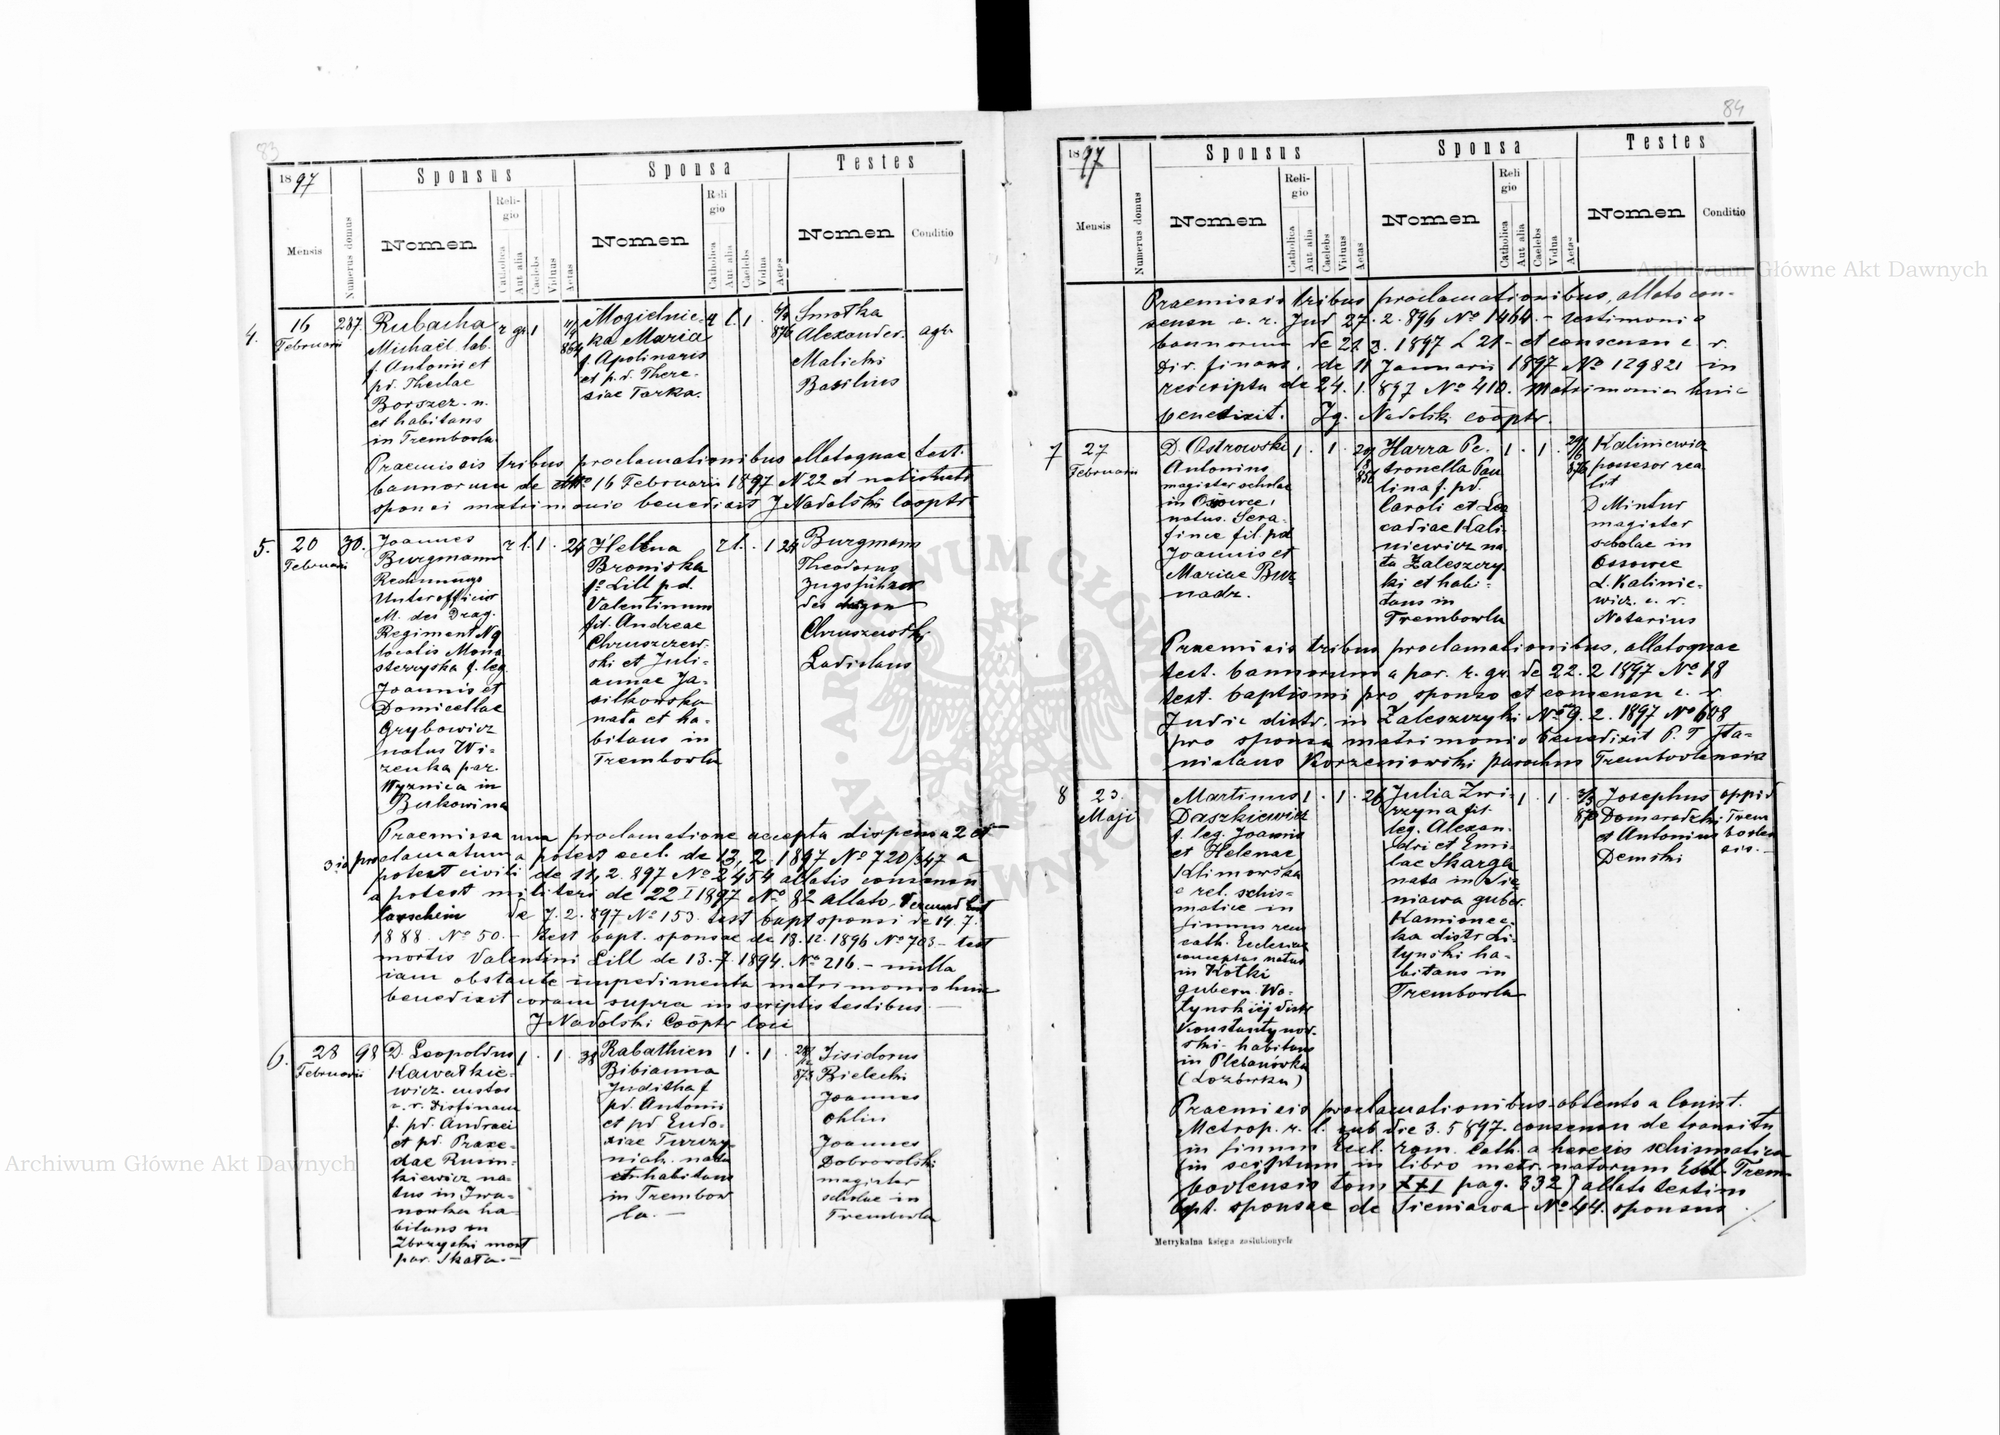 83
1897
Mensis
Numerus domus
Sponsus
Nomen
Religio
Catholica
Aut alia
Caelebs
Viduus
Aetas
Sponsa
Nomen
Religio
Catholica
Aut alia
Caelebs
Vidua
Aetas
Testes
Nomen
Conditio
4.
16
Februarii
287.
Rubacha
Michaël lab.
f. Antonii et
pd. Theclae
Borszcz. n.
et habitans
in Trembowla
r gr 1
Mogielnic-
ka Maria
f. Apolinaris
et p.d. There-
siae Torka.
Smotka
Alexander.
Malicki
Basilius
agr.
Praemissis tribus proclamationibus allatoque test.
bannorum de 16 Februarii 1897 N 22 et
sponsi matrimonio benedixit J Nadolski cooptr
5.
20
Februarii
30.
Joannes
Burgmann
Rechnungs
Unterofficier
M. des Drag.
Regiment N 9
locatis Mona
sterzyska f. leg.
Joannis et
Domicellae
Grybowicz
natus Wi-
zenka par.
Wyznica in
Bukowina
r. l. 1 . 24
Hellena
Broniska
Lill pd.
Valentinum
fil. Andreae
Chruszczew-
ski et Juli-
annae Ja-
silkowska
nata et ha-
bitans in
Trembowla
r l. . 1 24
Burgmann
Theodorus
Zugsführer
des dragon
Chruszewski
Ladislaus
Praemissa una proclamatione accepta dispensa 2 et
3 ia proclamatum a potest eccl. de 13, 2. 1897 No 720/347 a
potest civili de 11, 2. 897 No 2454 allatis consensu
a potest militari de 22 I 1897 No 82 allato,
de 7. 2. 897 No 153. test bapt sponsi de 14. 7.
1888. No 50.- test bapt. sponsae de 18. 12. 1896 No 703- test
mortis Valentini Lill de 13. 7. 1894. No 216. - nulla
iam obstante impedimenta matrimonio huic
benedixit coram supra in scriptis testibus
J Nadolski Cooptr loci
6.
28
Februarii
98
D. Leopoldus
Kawałkie-
wicz. custos
c. r.
f. pd. Andreei
et pd. Praxe-
dae Rusin-
kiewicz na-
tus in Iwa-
nowka ha-
bitans in
Zbrzyski most
par. Skała.-
1 . 1 . 38
Rabathien
Bibianna
Juditha f
pd. Antonii
et pd Eudo-
xiae Turczy-
niak. nata
et habitans
in Trembow
la. -
1 . 1 .
Isidorus
Bielecki
Joannes
Ohlin
Joannes
Dobrowolski
magister
scholae in
Trembowla
84
1897
Mensis
Numerus domus
Sponsus
Nomen
Religio
Catholica
Aut alia
Caelebs
Viduus
Aetas
Sponsa
Nomen
Religio
Catholica
Aut alia
Caelebs
Vidua
Aetas
Testes
Nomen
Conditio
Praemissis tribus proclamationibus, allato con-
sensu c. r. Jud 27. 2. 896 No 1464. - testimonio
bannorum de 21 2. 1897 L 21 - et consensu c. r.
Dir. finans. de 11 Januarii 1897 No 129821 in
rescriptu de 24. 1. 897 No 410. Matrimonia huic
benedixit. Ig. Nadolski cooptr.
7
27
Februarii
D. Ostrowski
Antonius
magister scholae
in Ossowce,
natus. Sera-
fince fil. pd
Joannis et
Mariae Bur
nadz.
1 . 1 .
Harra Pe.
tronella Pau
lina f. pd.
Caroli et Leo
cadiae Kali-
niewicz na
ta Zaleszczy
ki et habi-
tans in
Trembowla
1 . 1 .
Kaliniewicz
possesor rea
lit
D Mintur
magister
scholae in
Ossowce
L. Kalinie-
wicz. c. r.
Notarius
Praemissis tribus proclamationibus, allatoque
test. bannorum a par. r. gr. de 22. 2 1897 No 18
test. baptismi pro sponso et consensu c. r.
Judic distr. in Zaleszczyki No 9. 2. 1897 No 608
pro sponsa matrimonio benedixit P. T Sta-
nislaus Korzeniowski parochus Trembowlensis
8
23.
Maji
Martinus
Daszkiewicz
f. leg. Joannis
et Helenae
Klimowska
e rel. schis-
matica in
sinum rom
cath. Ecclesiae
conceptus natus
in Kotki
gubern. Wo-
łynskiej distr
Konstantynow.
ski. habitans
in Plebanówka
(Lozówka)
1 . 1 . 26
Julia Zwi-
rzyna fil.
leg. Alexan-
dri et Emi-
liae Skarga
nata in Sie-
niawa guber.
Kamionec-
ka distr Li-
tynski ha-
bitans in
Trembowla
1 . 1 .
Josephus
Domaradzki
et Antonius
Demski
oppid
Trem
bowlen
sis. -
Praemissis proclamationibus-obtento a Consist.
Metrop. r. l. sub die 3. 5 897. consensu de transitu
in sinum Eccl. rom. cath. a heresis schismatica
(in scriptum in libro metr. natorum Eccl. Trem-
bovlensis tom XXI pag. 332) allato testim
bpt. sponsae de Sieniawa No 44. sponsus
Metrykalna księga zaślubionych
Archiwum Główne Akt Dawnych
Archiwum Główne Akt Dawnych
ARCHIWUM GŁÓWNE AKT DAWNYCH